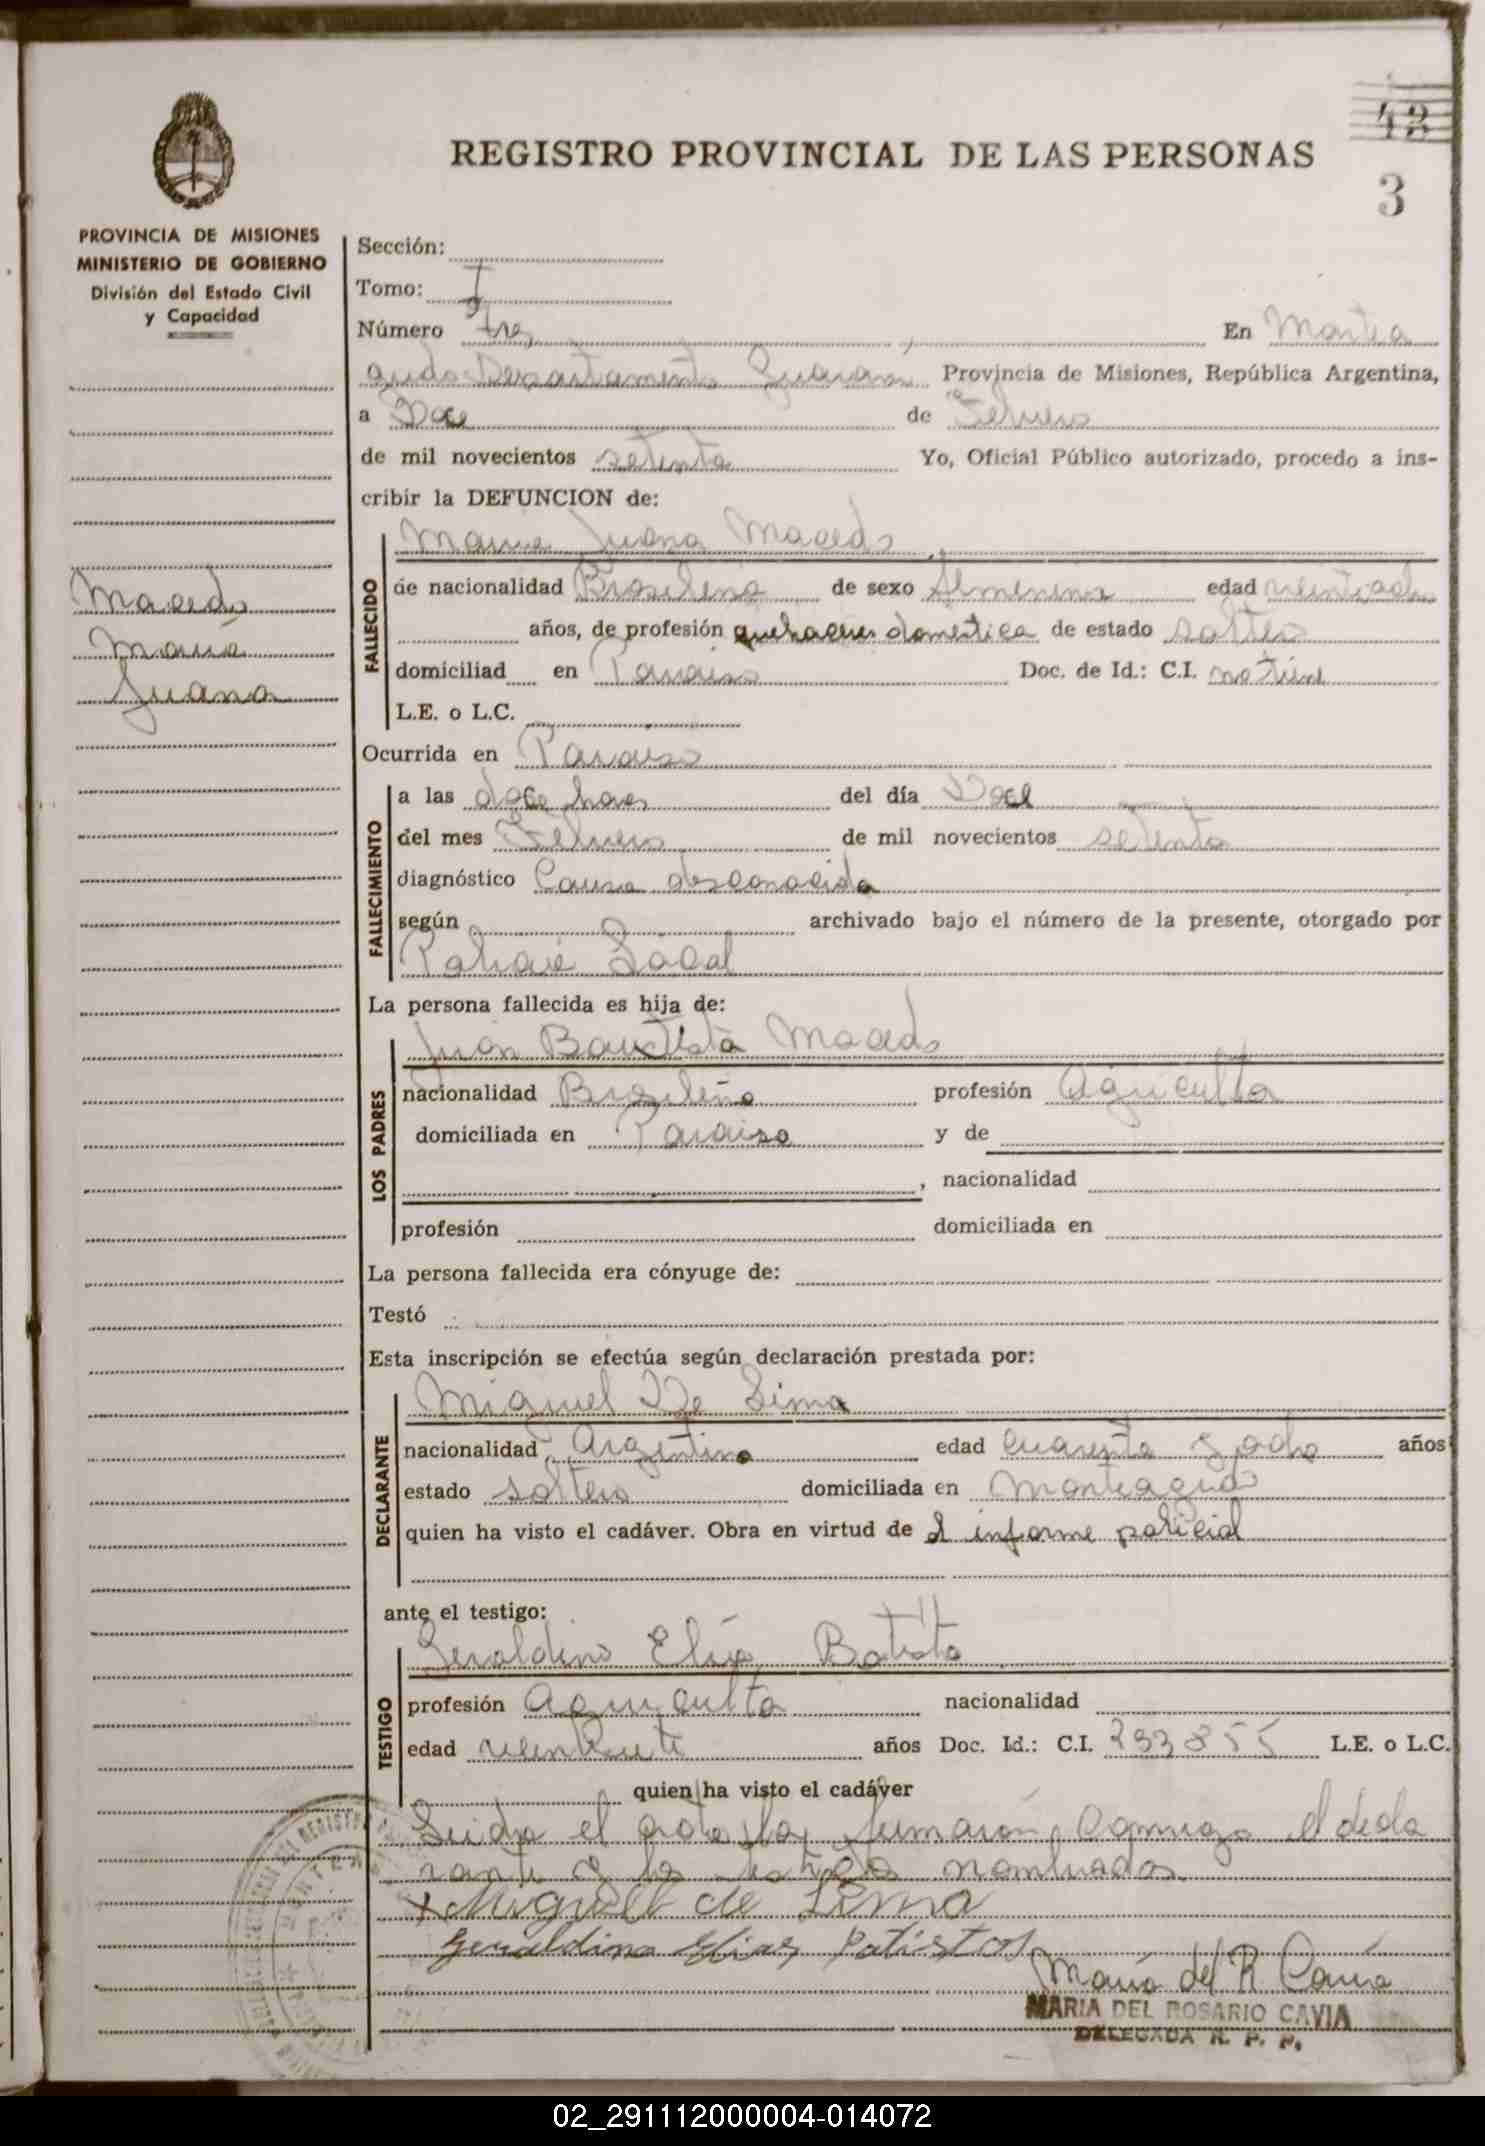 42
REGISTRO PROVINCIAL DE LAS PERSONAS
3
PROVINCIA DE MISIONES
MINISTERIO DE GOBIERNO
División del Estado Civil
y Capacidad
Macedo
María
Juana
Sección:
Tomo: I
Número tres, En Montea
gudo Departamento Guaraní Provincia de Misiones, República Argentina,
a Doce de Febrero
de mil novecientos setenta Yo, Oficial Público autorizado, procedo a ins-
cribir la DEFUNCION de:
María Juana Macedo
FALLECIDO
de nacionalidad Brasileña de sexo femenina edad veintiocho
años, de profesión quehaceres domestica de estado soltero
domiciliad en Paraiso Doc. de Id.: C.I. no tiene
L.E. o L.C.
Ocurrida en Paraiso
FALLECIMIENTO
a las doce horas del día Doce
del mes Febrero de mil novecientos setenta
diagnóstico Causa desconocida
según archivado bajo el número de la presente, otorgado por
Policía Local
La persona fallecida es hija de:
LOS PADRES
Juan Bautista Macedo
nacionalidad Brasileño profesión Agriculto
domiciliada en Paraiso y de
, nacionalidad
profesión domiciliada en
La persona fallecida era cónyuge de:
Testó
Esta inscripción se efectúa según declaración prestada por:
DECLARANTE
Miguel De Lima
nacionalidad Argentino edad cuarenta y ocho años
estado soltero domiciliada en Monteagudo
quien ha visto el cadáver. Obra en virtud de el informe policial
ante el testigo:
TESTIGO
Geraldino Elía Batista
profesión Agriculto nacionalidad
edad años Doc. Id.: C.I. 233855 L.E. o L.C.
quien ha visto el cadáver
Leida el acta la firmarón conmigo el decla
rante y los testigo nombrados.
Miguel de Lima
Geraldino Elias Batista
María del R. Cavia
MARIA DEL ROSARIO CAVIA
DELEGADA R. P. P.
02_291112000004-014072